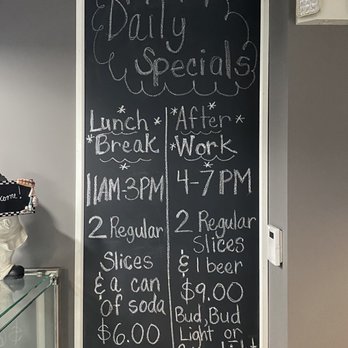 Daily
Specials
*Lunch*
Break
11AM-3PM
2 Regular
Slices
& a can
Of soda
$6.00
*After*
*Work*
4-7PM
2 Regular
Slices
& 1 beer
$9.00
Bud, Bud
Light or